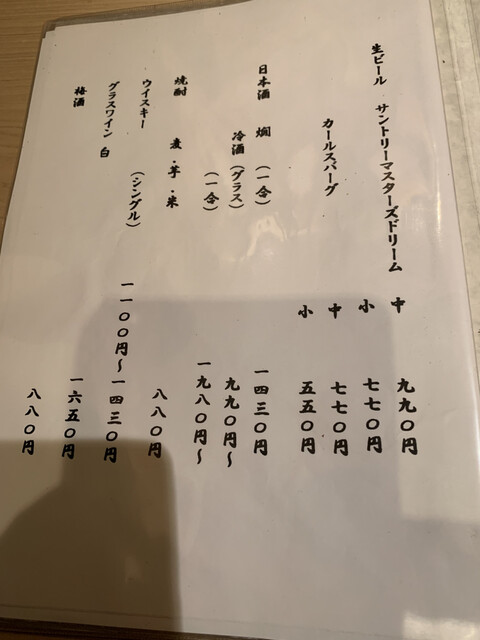 生ビール サントリーマスターズドリーム 中 九九〇円
小 七七〇円
カールスバーグ 中 七七〇円
小 五五〇円
日本酒 燗 (一合) 一四三〇円
冷酒(グラス) 九九〇円～
(一合) 一九八〇円～
焼酎 麦・芋・米 八八〇円
ウイスキー (シングル) 一一〇〇円～一四三〇円
グラスワイン 白 一六五〇円
梅酒 八八〇円